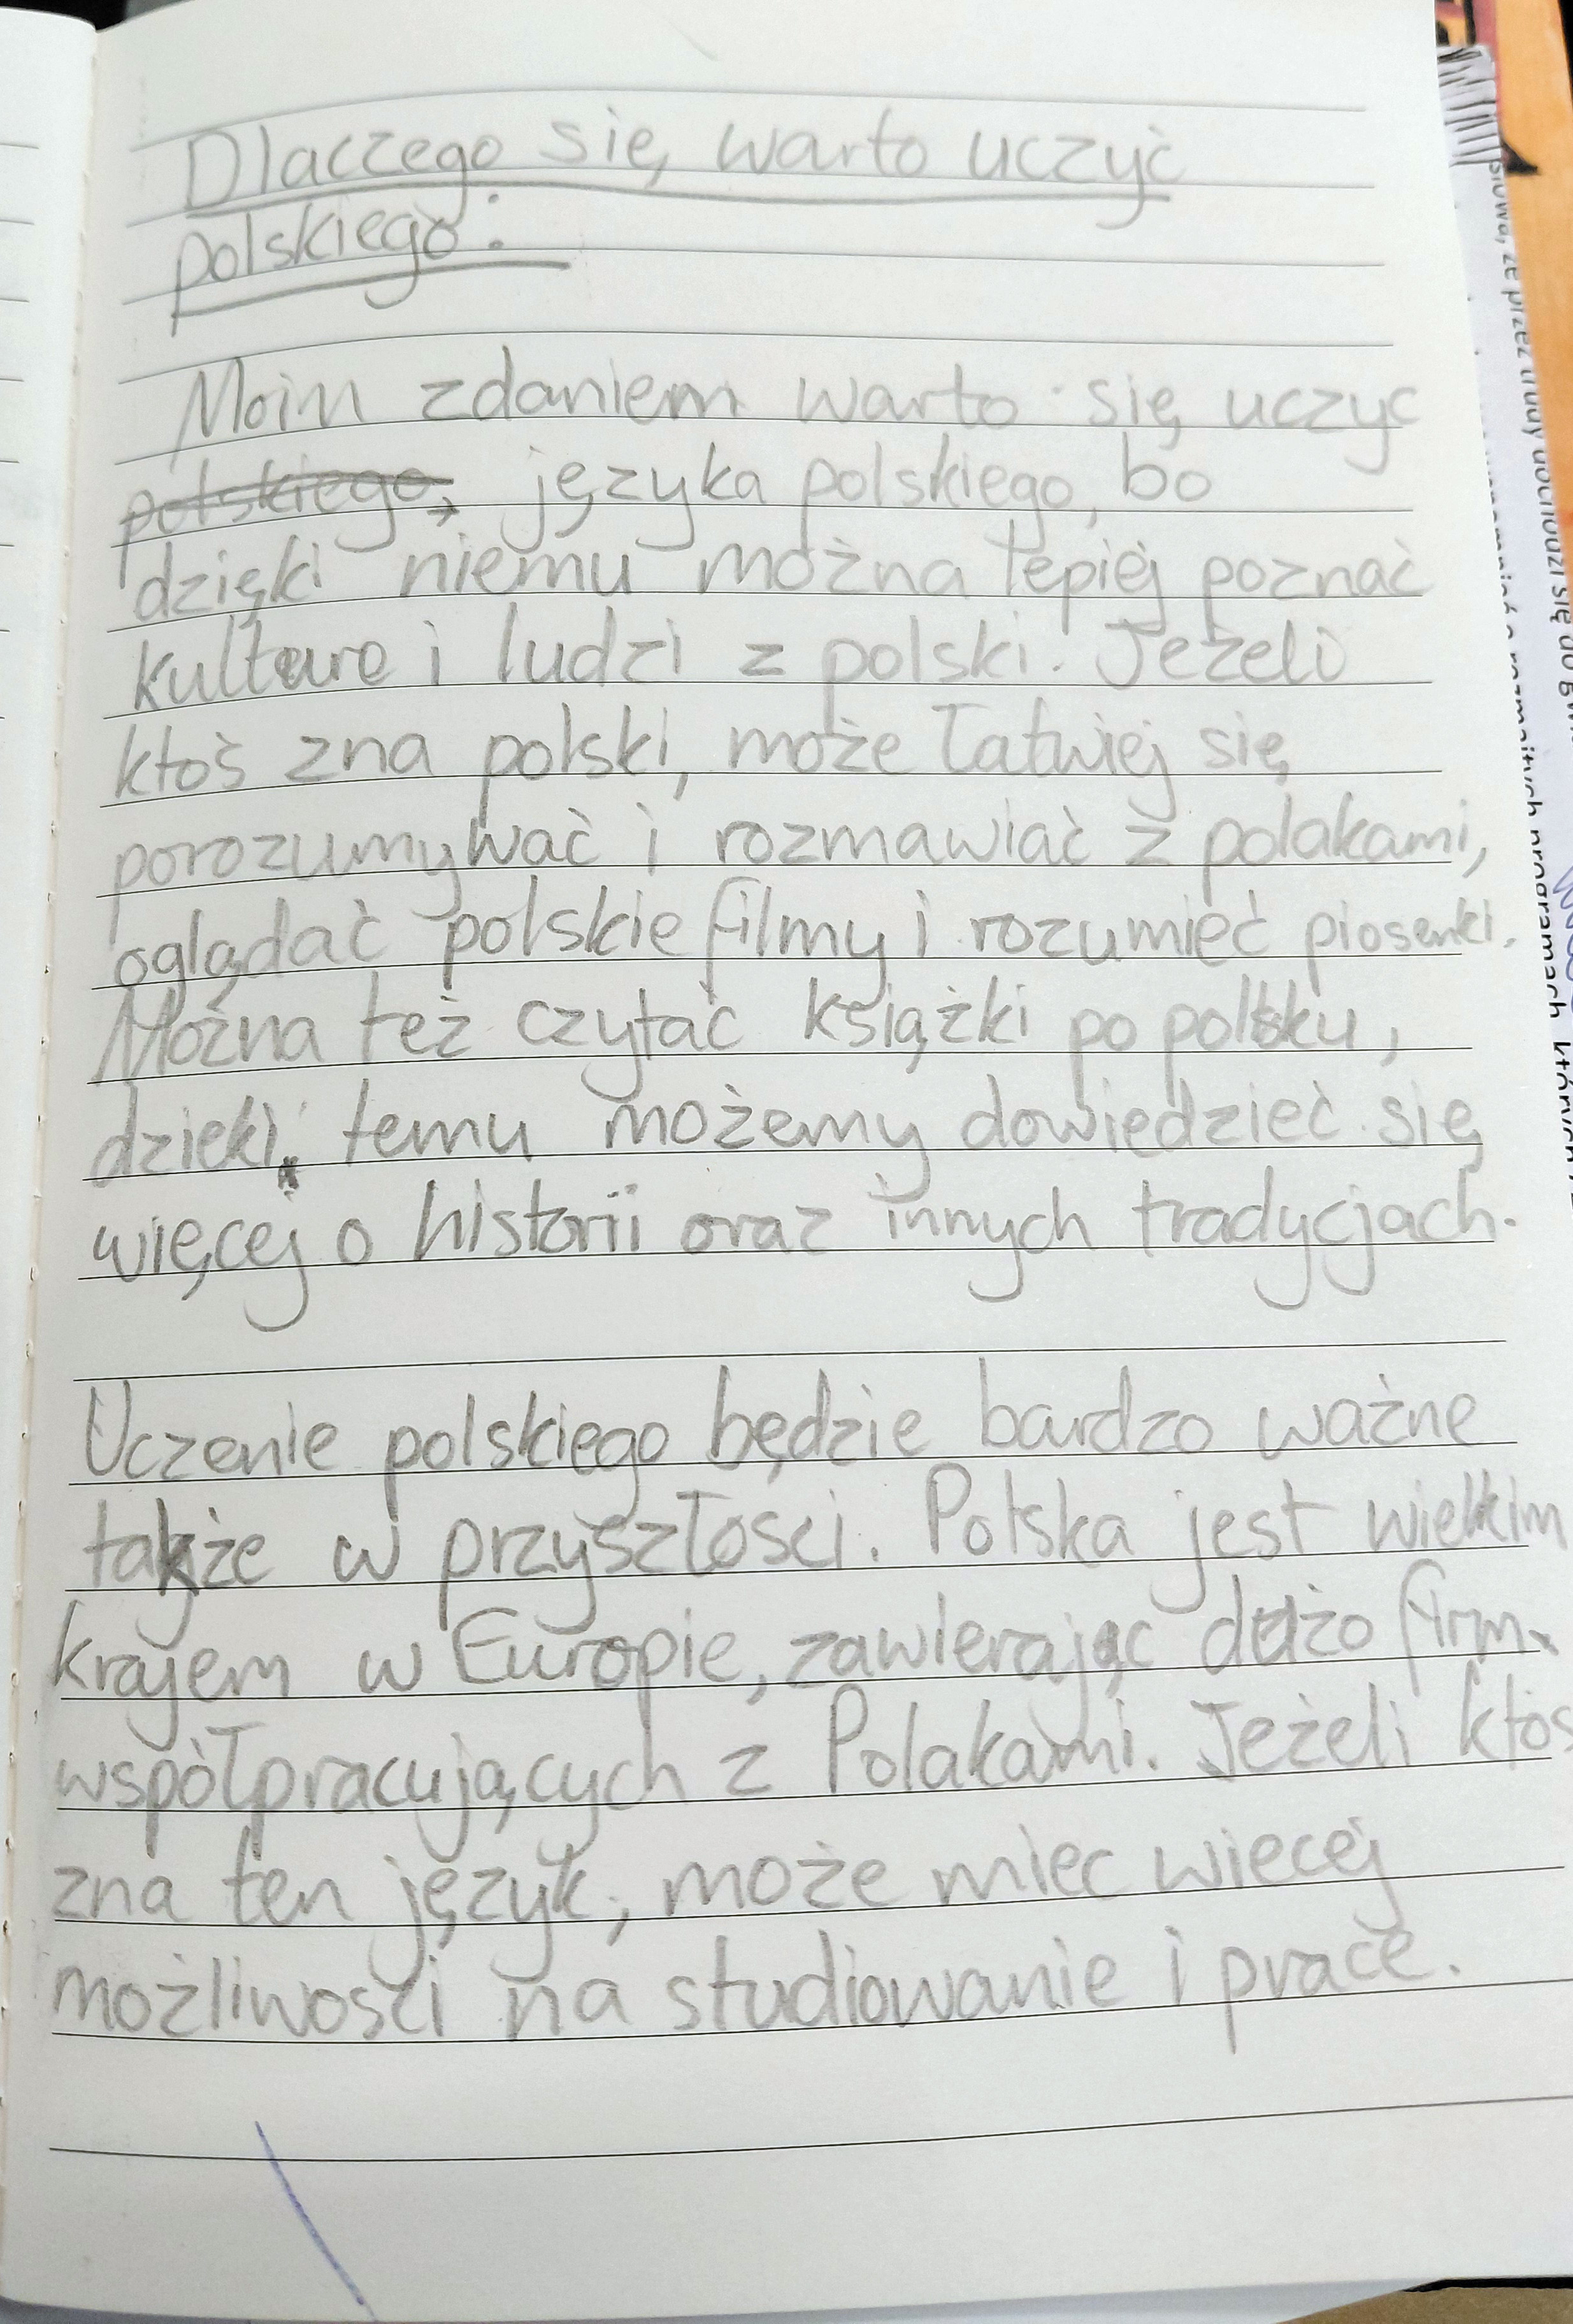 Dlaczego się warto uczyć
polskiego:
Moim zdaniem warto się uczyc
polskiego, języka polskiego, bo
dzięki niemu można lepiej poznać
kulture i ludzi z polski. Jeżeli
ktoś zna polski, może łatwiej się
porozumywać i rozmawiać z polakami,
oglądać polskie filmy i rozumieć piosenki.
Można też czytać książki po polsku,
dzieki temu możemy dowiedzieć się
więcej o historii oraz innych tradycjach.
Uczenie polskiego będzie bardzo ważne
także w przyszłości. Polska jest wielkim
krajem w Europie, zawierając dużo firm
współpracujących z Polakami. Jeżeli ktoś
zna ten język, może miec wiecej
możliwości na studiowanie i prace.